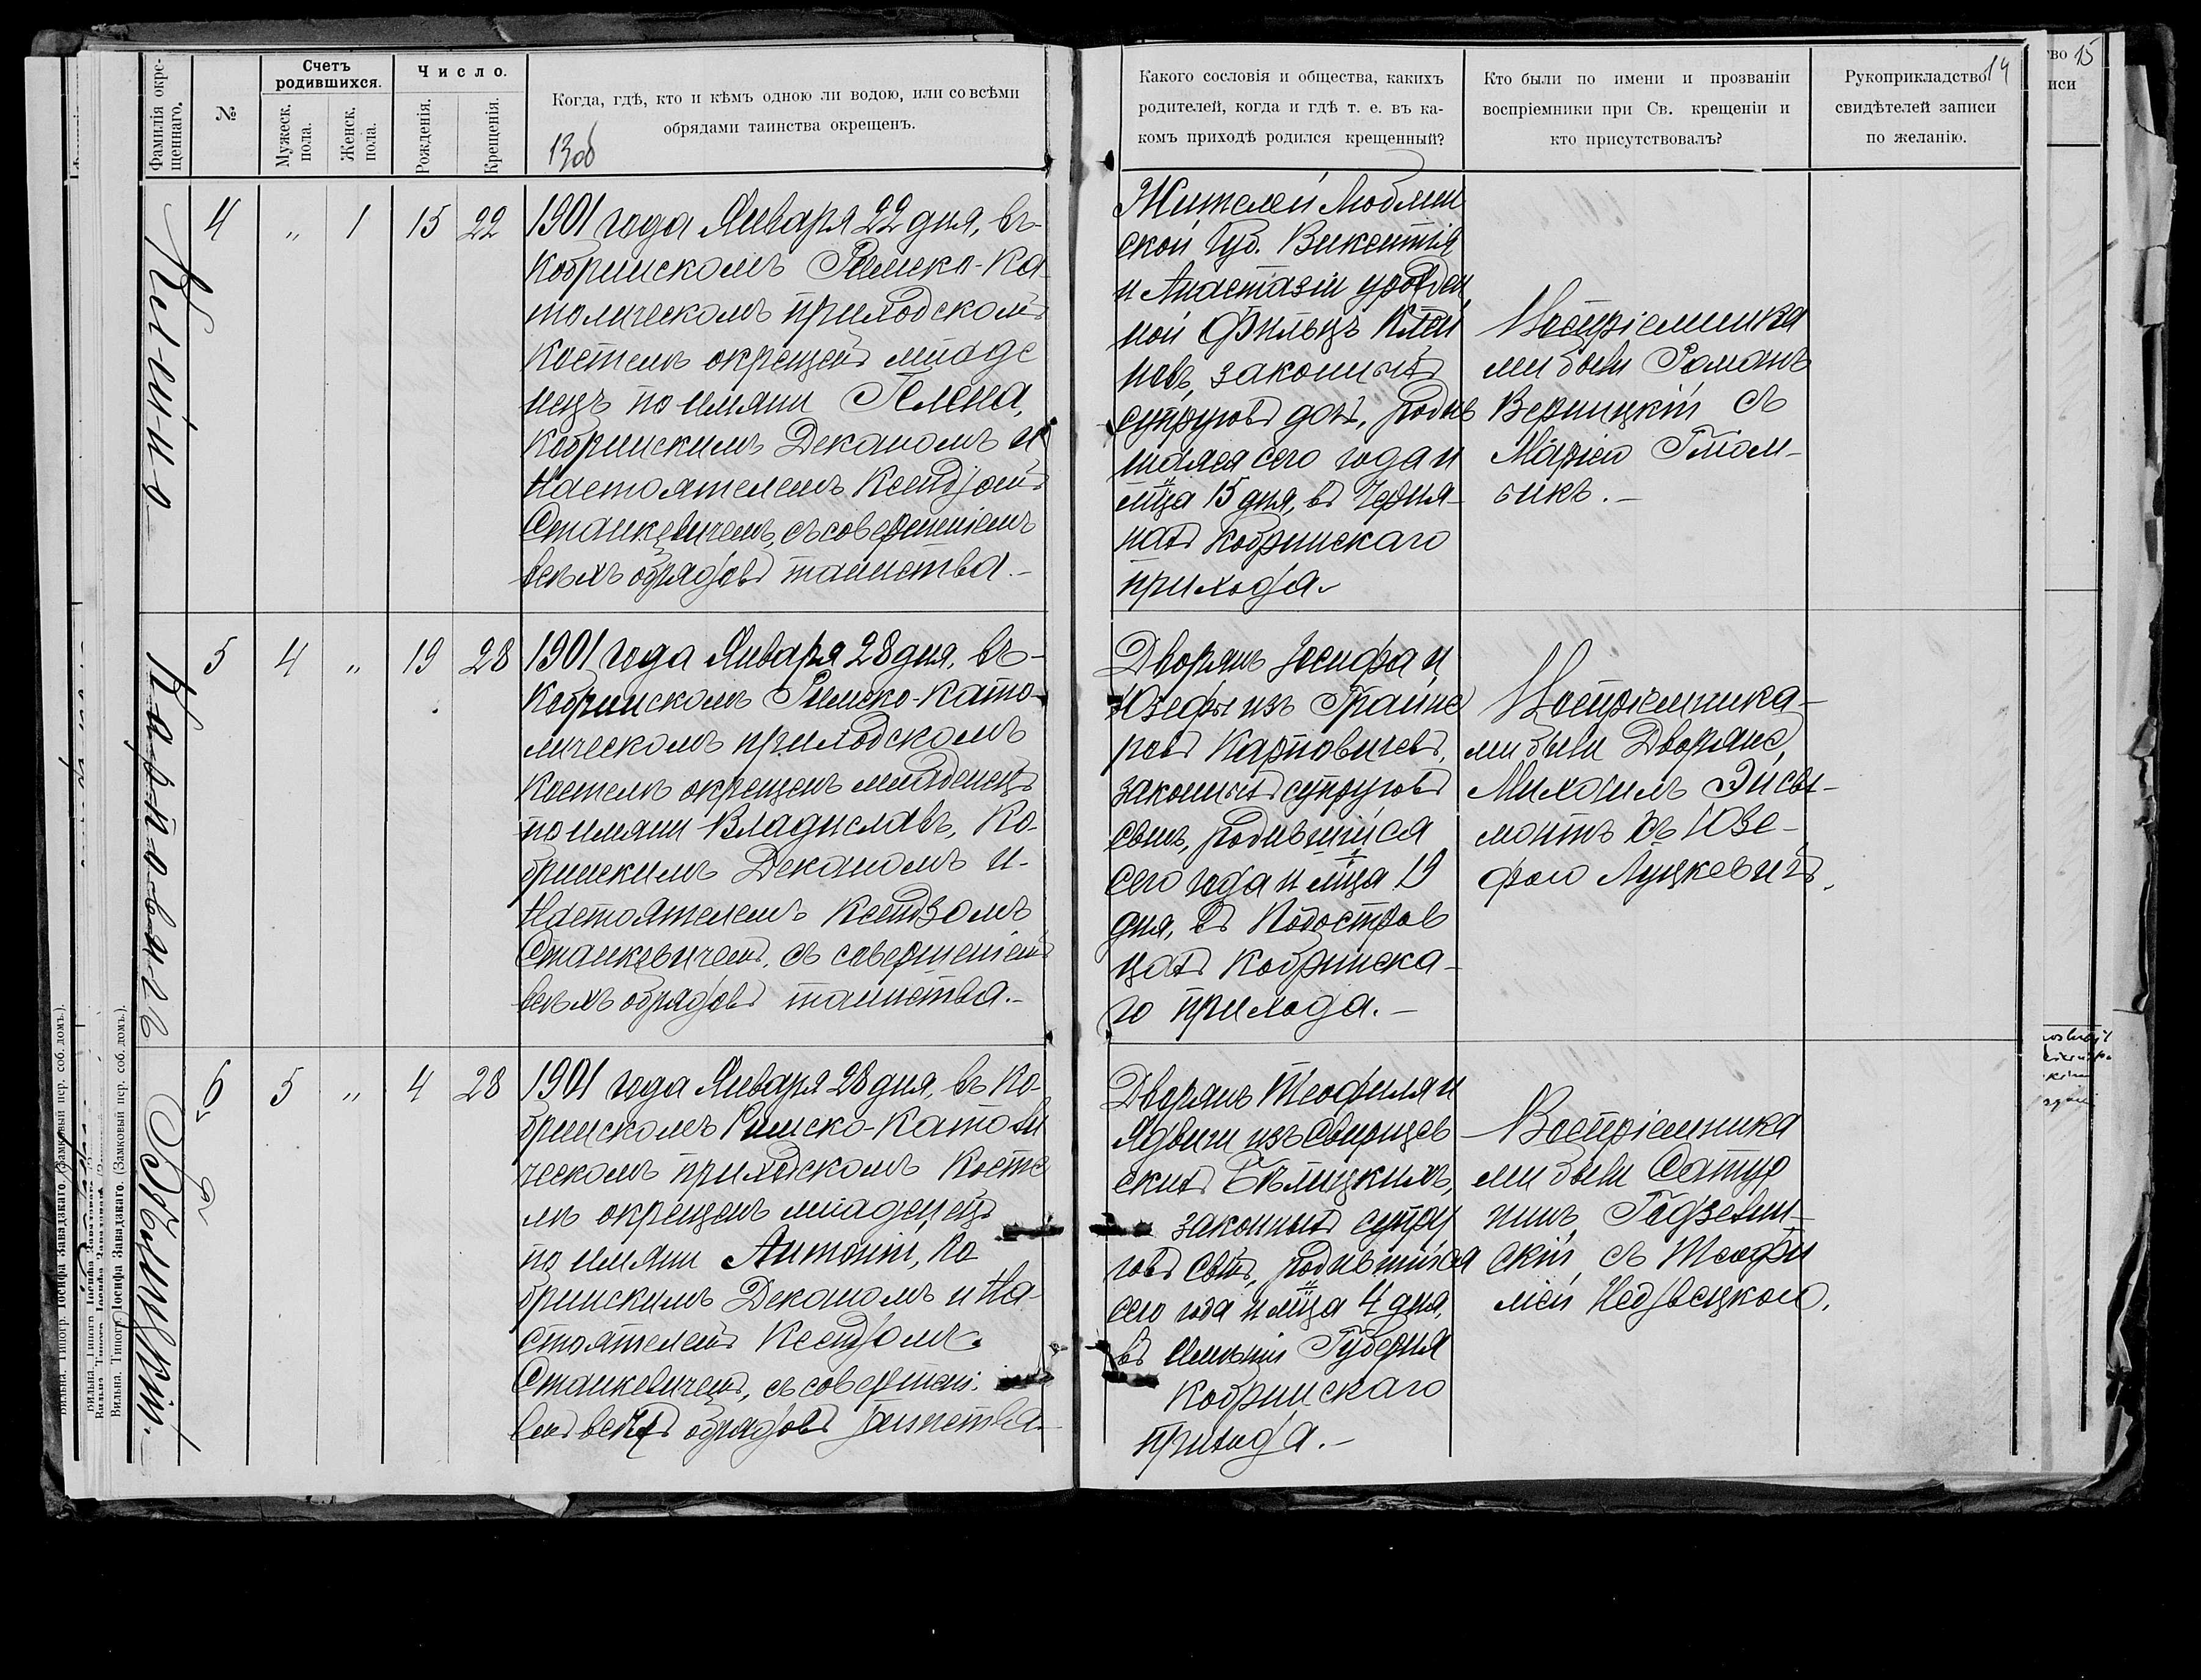 Фамилія окре-
щеннаго.
№
Счетъ
родившихся.
Мужеск.
пола.
Женск.
пола.
Число.
Рожденія.
Крещенія.
Когда, гдѣ, кто и кѣмъ одною ли водою, или со всѣми
обрядами таинства окрещенъ.
13об
Какого сословія и общества, какихъ
родителей, когда и гдѣ т. е. въ ка-
комъ приходѣ родился крещенный?
Кто были по имени и прозванію
воспріемники при Св. крещеніи и
кто присутствовалъ?
Рукоприкладство
свидѣтелей записи
по желанію.
14
15
4 " 1 15 22
1901 года Января 22 дня, въ
Кобринскомъ Римско-Ка
толическомъ приходскомъ
Костелѣ окрещенъ младе
нецъ по имяни Гелена,
Кобринскимъ Деканомъ и
Настоятелемъ Ксендзомъ
Станкевичемъ, съ совершеніемъ
всѣхъ обрядовъ таинства.-
Жителей Люблин
ской Губ. Викентія
и Анастазіи урожден
ной Фильцъ Клей
новъ, законныхъ
супруговъ дочь, родив
шаяся сего года и
мѣца 15 дня, въ Черня-
нахъ Кобринскаго
прихода.-
Воспріемника
ми были Романъ
Верницкій съ
Маріею
Карповичъ
5 4 " 19 28
1901 года Января 28 дня, въ-
Кобринскомъ Римско-Като-
лическомъ приходскомъ
Костелѣ окрещенъ младенецъ
по имяни Владиславъ, Ко-
бринскимъ Деканомъ и-
Настоятелемъ Ксендзомъ
Станкевичемъ, съ совершеніемъ
всѣхъ обрядовъ таинства.-
Дворянъ Іосифа и
Юзефы изъ Грайне
ровъ Карповичевъ,
законныхъ супруговъ
сынъ, родившійся
сего года и мѣца 19
дня, въ Подостров
цахъ Кобринска-
го прихода.-
Воспріемника-
ми были Дворяне,
Михаилъ Эйсы-
монтъ съ Юзе-
фою Луцкевичъ.
Бѣлицкій
6 5 " 4 28
1901 года Января 28 дня, въ Ко-
бринскомъ Римско-Католи
ческомъ приходскомъ Косте
лѣ окрещенъ младенецъ
по имяни Антоній, Ко
бринскимъ Деканомъ и На-
стоятелемъ Ксендзомъ
Станкевичемъ, съ совершені-
емъ всѣхъ обрядовъ таинства-
Дворянъ Теофиля и
Ядвиги изъ
скихъ Бѣлицкихъ,
законныхъ супру
говъ сынъ, родившійся
сего года и мѣца 4 дня,
въ Губерня
Кобринскаго
прихода.-
Воспріемника
ми были Сатур
нинъ
скій съ Теофи
лей Недзвецкою.
Вильна. Типогр. Іосифа Завадзкаго. (Замковый пер. соб. домъ.).